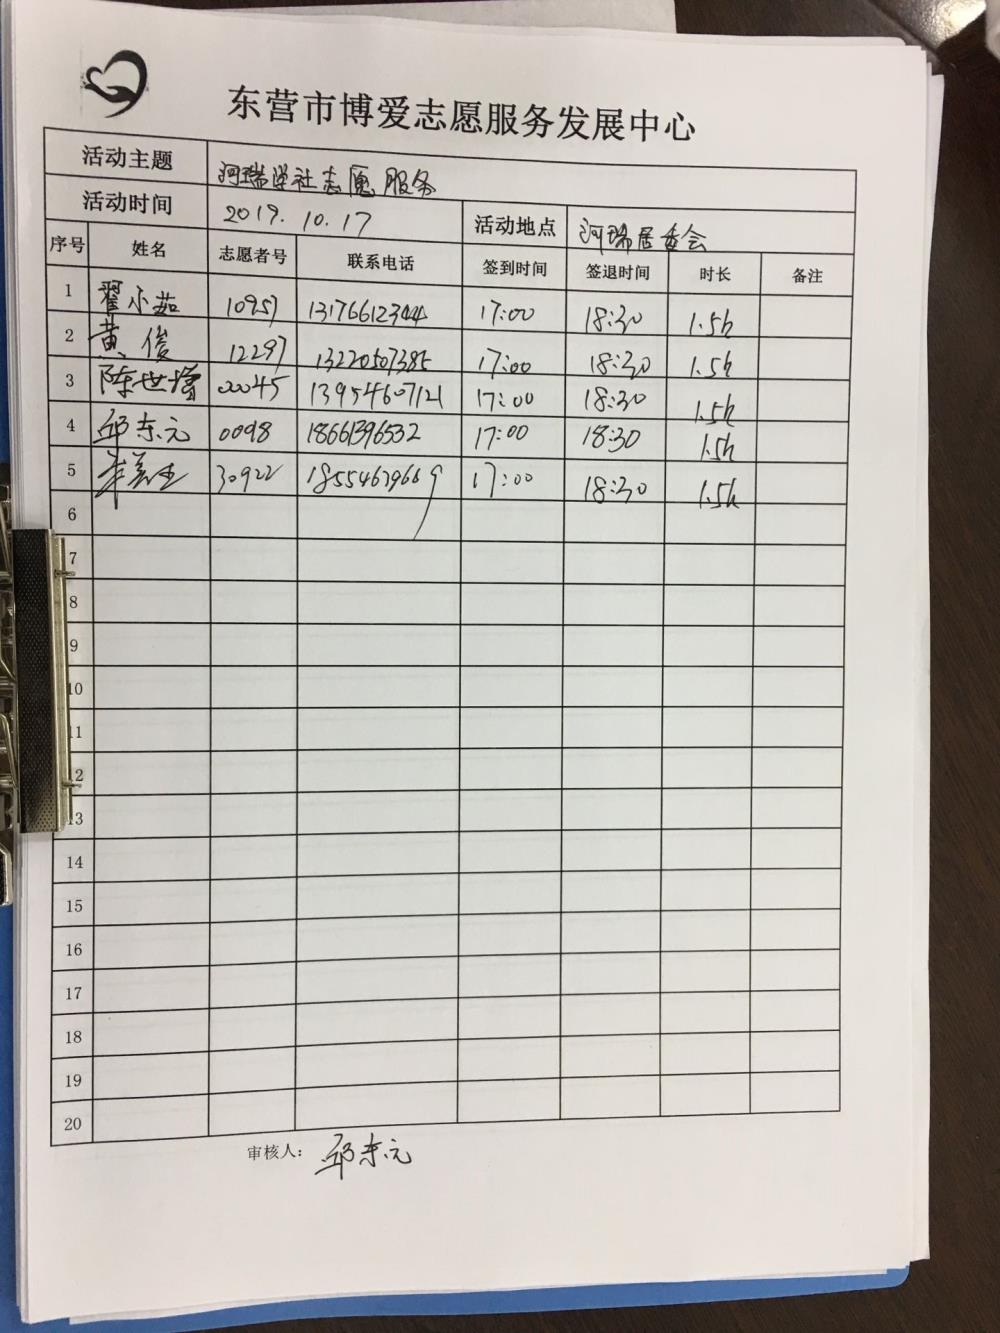 东营市博爱志愿服务发展中心
活动主题 河瑞学社志愿服务
活动时间 2019.10.17 活动地点 河瑞居委会
序号 姓名 志愿者号 联系电话 签到时间 签退时间 时长 备注
1 翟小茹 10957 13176612344 17:00 18:30 1.5h
2 黄俊 12297 13220507385 17:00 18:30 1.5h
3 陈世增 00045 13954607121 17:00 18:30 1.5h
4 邱东元 0098 18661396532 17:00 18:30 1.5h
5 30922 18554679669 17:00 18:30 1.5h
6
7
8
9
10
11
12
13
14
15
16
17
18
19
20
审核人: 邱东元